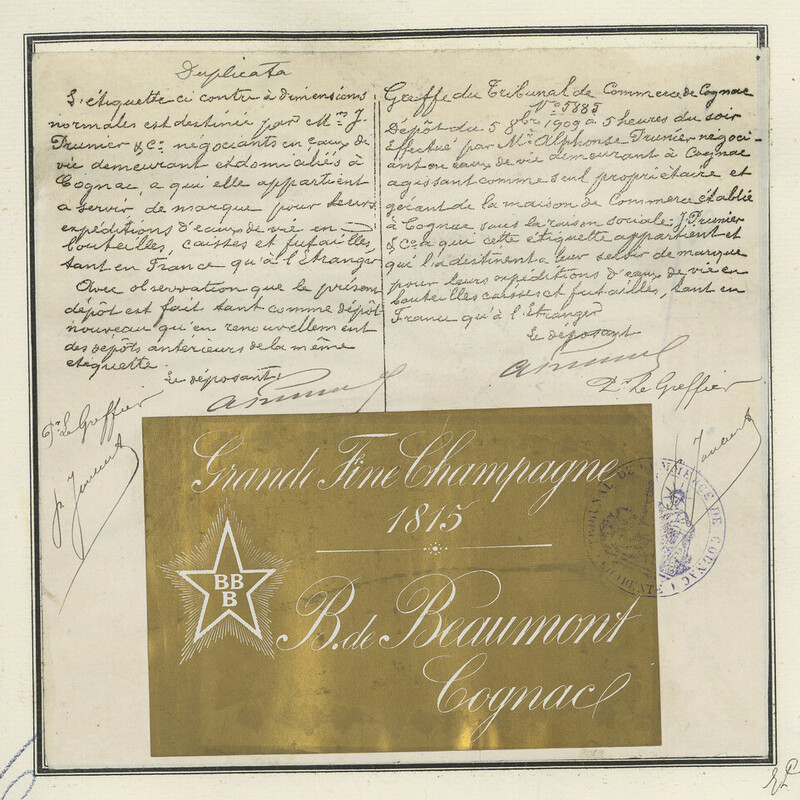 Duplicata
L'étiquette ci contre à dimensions
normales est destinée par MM. J.
Prunier & Cie négociants en eaux de
vie demeurant et domiciliés à
Cognac, a qui elle appartient
a servir de marque pour leurs
expéditions d'eaux de vie en
bouteilles, caisses et futailles,
tant en France qu'à l'Etranger
Avec observation que le présent
dépôt est fait tant comme dépôt
nouveau qu'en renouvellement
des dépôts antérieurs de la même
étiquette.
Le déposant,
Pr. Le Greffier
Greffe du Tribunal de Commerce de Cognac
No 5885
Dépôt du 5 8bre 1909 à 5 heures du soir
Effectué par Mr. Alphonse Prunier négoci-
ant en eaux de vie demeurant à Cognac
agissant comme seul propriétaire et
gérant de la maison de Commerce établie
à Cognac sous la raison sociale J. Prunier
& Co a qui cette étiquette appartient et
qui la destinent a leur servir de marque
pour leurs expéditions d'eaux de vie en
bouteilles caisses et futailles, tant en
France qu'à l'Etranger
Le déposant
Pr. Le Greffier
Grande Fine Champagne
1815
BB
B
B. de Beaumont
Cognac
TRIBUNAL DE COMMERCE DE COGNAC
CHARENTE